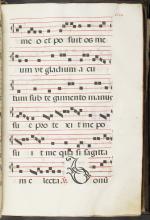 me o et po suit os me
um vt gladium a cu
tum sub te gumento manus
su e pro te xi t me po
su i t me qua si sagitta
m e lecta. ℣. Bonū